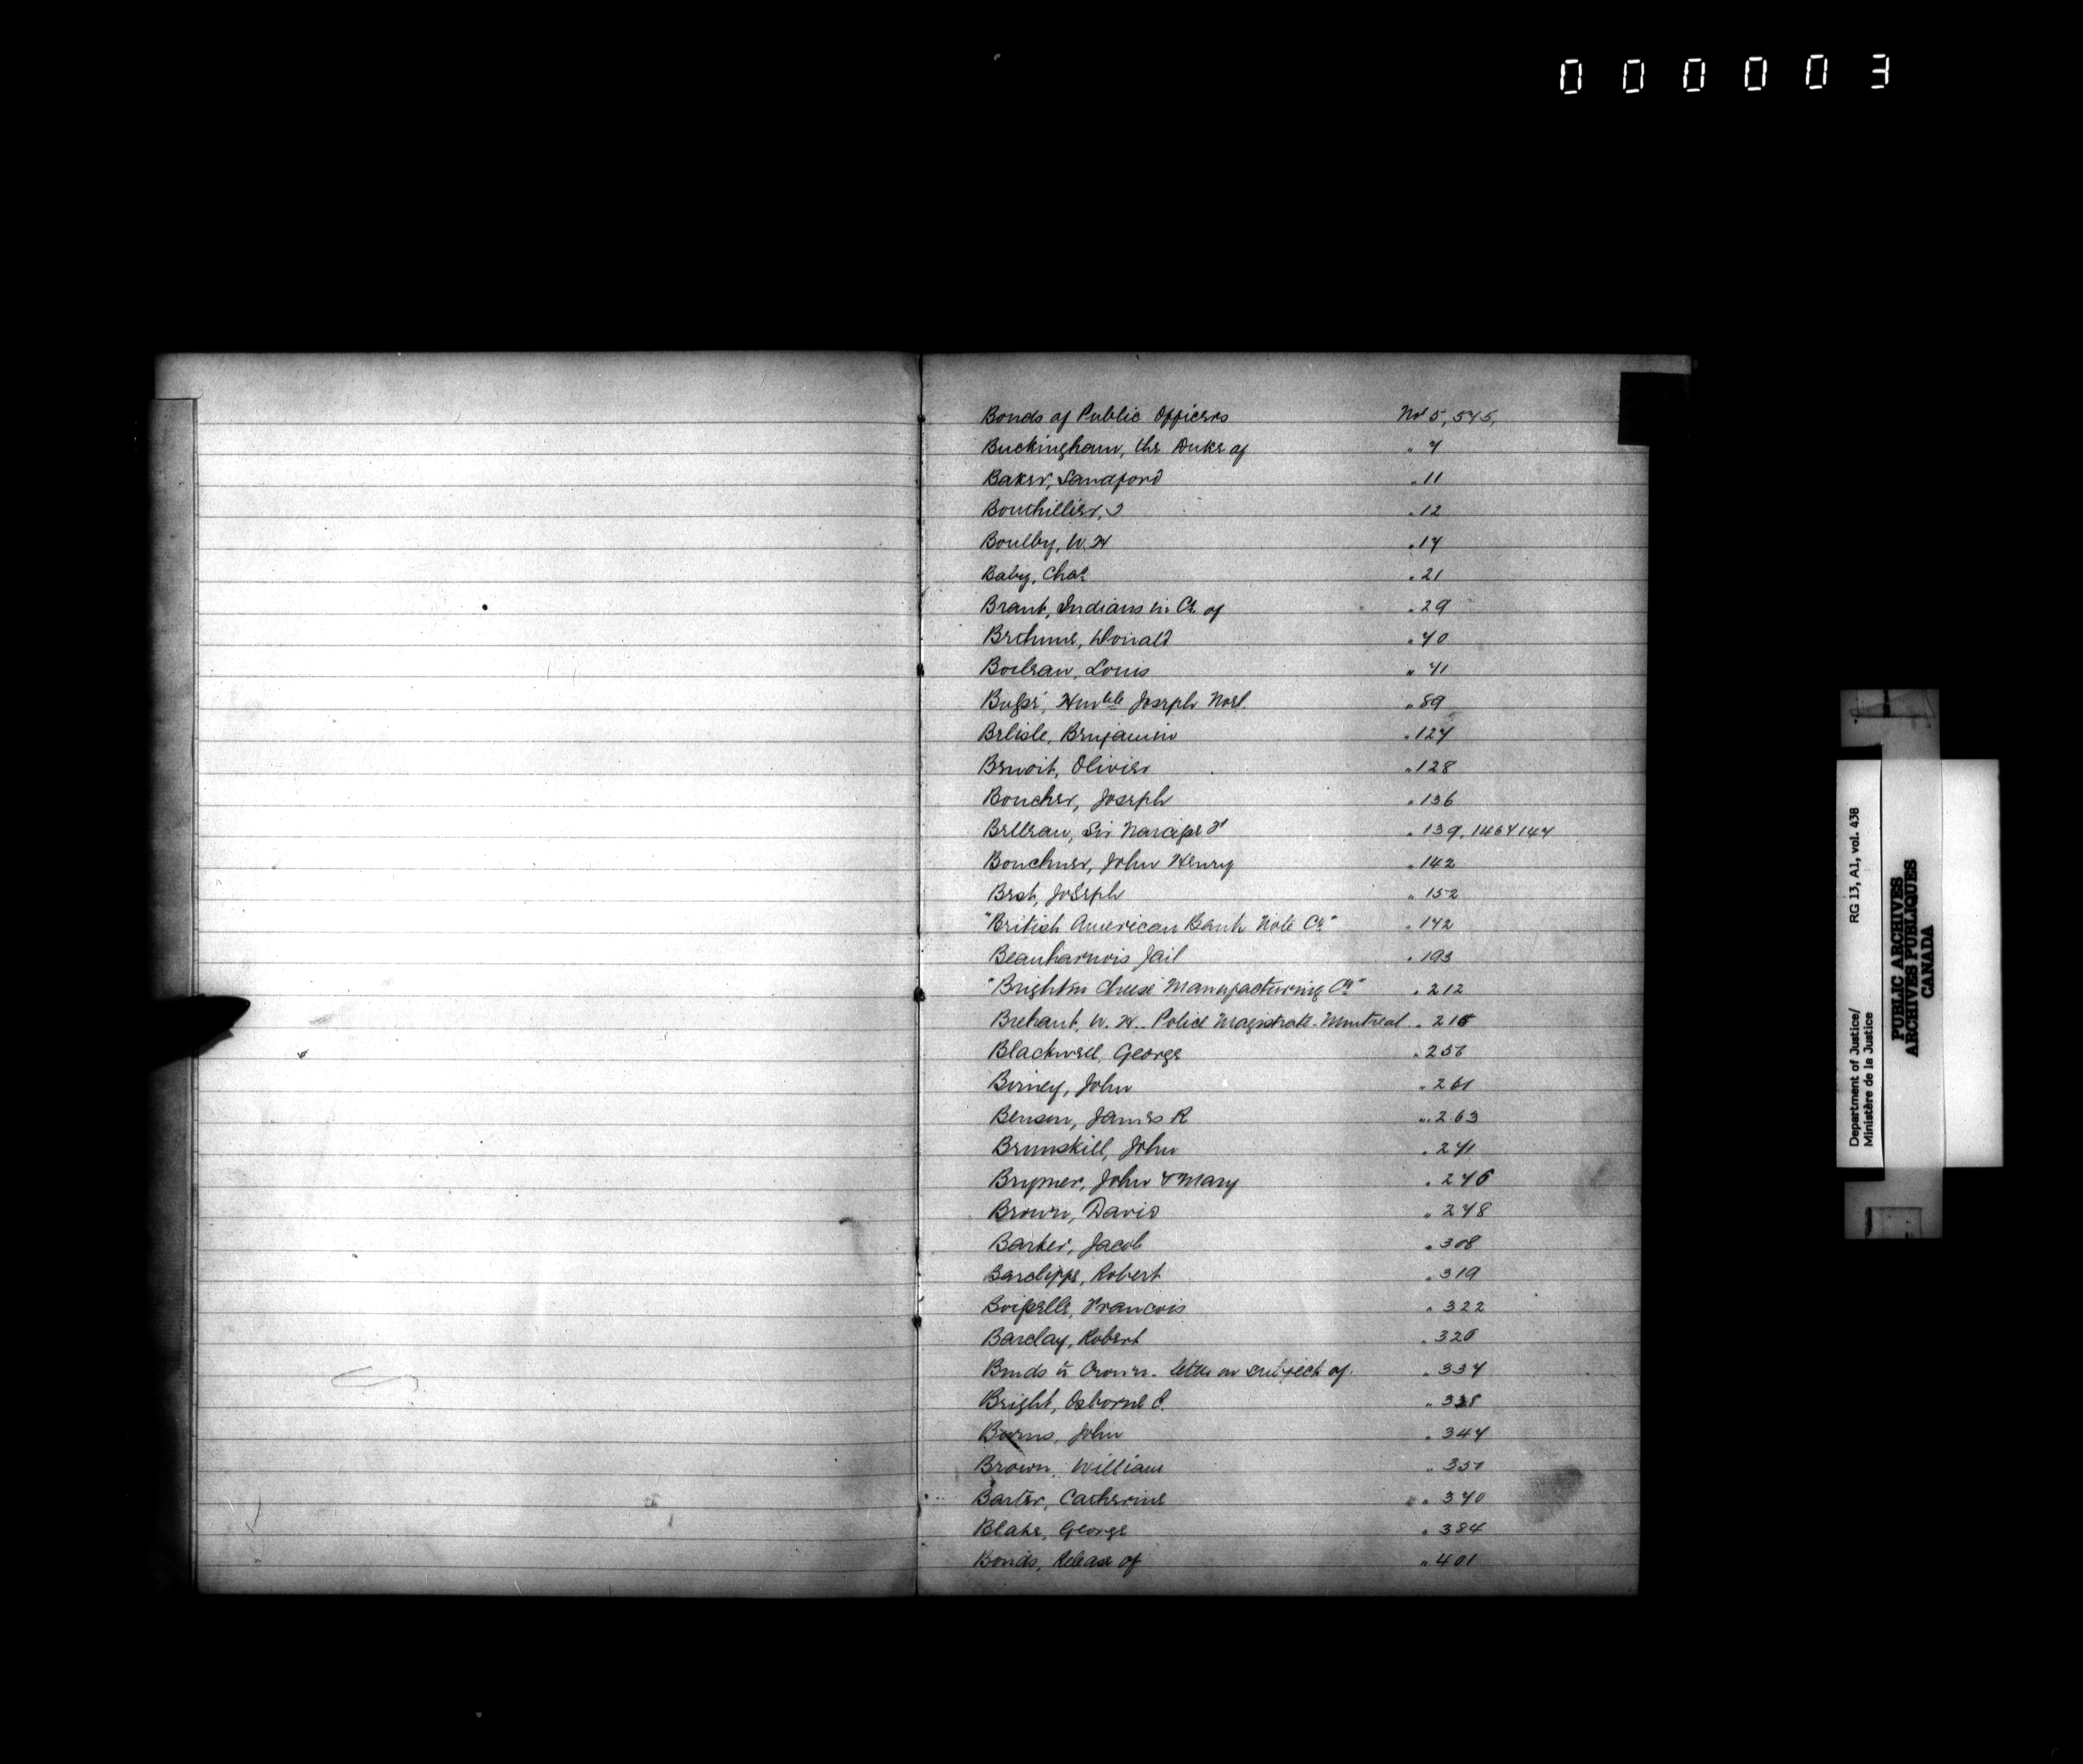 000003
Bonds of Public Officers Nos 5, 575,
Buckingham, the Duke of " 7
Baker, Sandford " 11
Bouthillier, J " 12
Boulby, W. H " 17
Baby, Chas " 21
Brant, Indians in Co. of " 29
Bethune, Donald " 70
Boileau, Louis " 71
Bossé, Honble Joseph Noel " 89
Belisle, Benjamin " 127
Benoit, Olivier " 128
Boucher, Joseph " 136
Belleau, Sir Narcisse F " 139,
Bouchner, John Henry " 142
Best, Joseph " 152
"British American Bank Note Co." " 172
Beauharnois Jail " 193
"Brighton Cheese Manufacturing Co" " 212
Brehaut, W. H. Police Magistrate - Montreal " 216
Blackwell, George " 256
Birney, John " 261
Benson, James R " 263
Brunskill, John " 271
Brymer, John & Mary " 276
Brown, David " 278
Barker, Jacob " 308
Barcliffe, Robert " 319
Boisselle, Francois " 322
Barclay, Robert " 326
Bonds to Crown - letter on subject of " 337
Bright, Osborne C. " 338
Burns, John " 347
Brown, William " 351
Barter, Catherine " 370
Blake, George " 384
Bonds, Release of " 401
Department of Justice/ RG 13, A1, vol. 438
Ministère de la Justice
PUBLIC ARCHIVES
ARCHIVES PUBLIQUES
CANADA